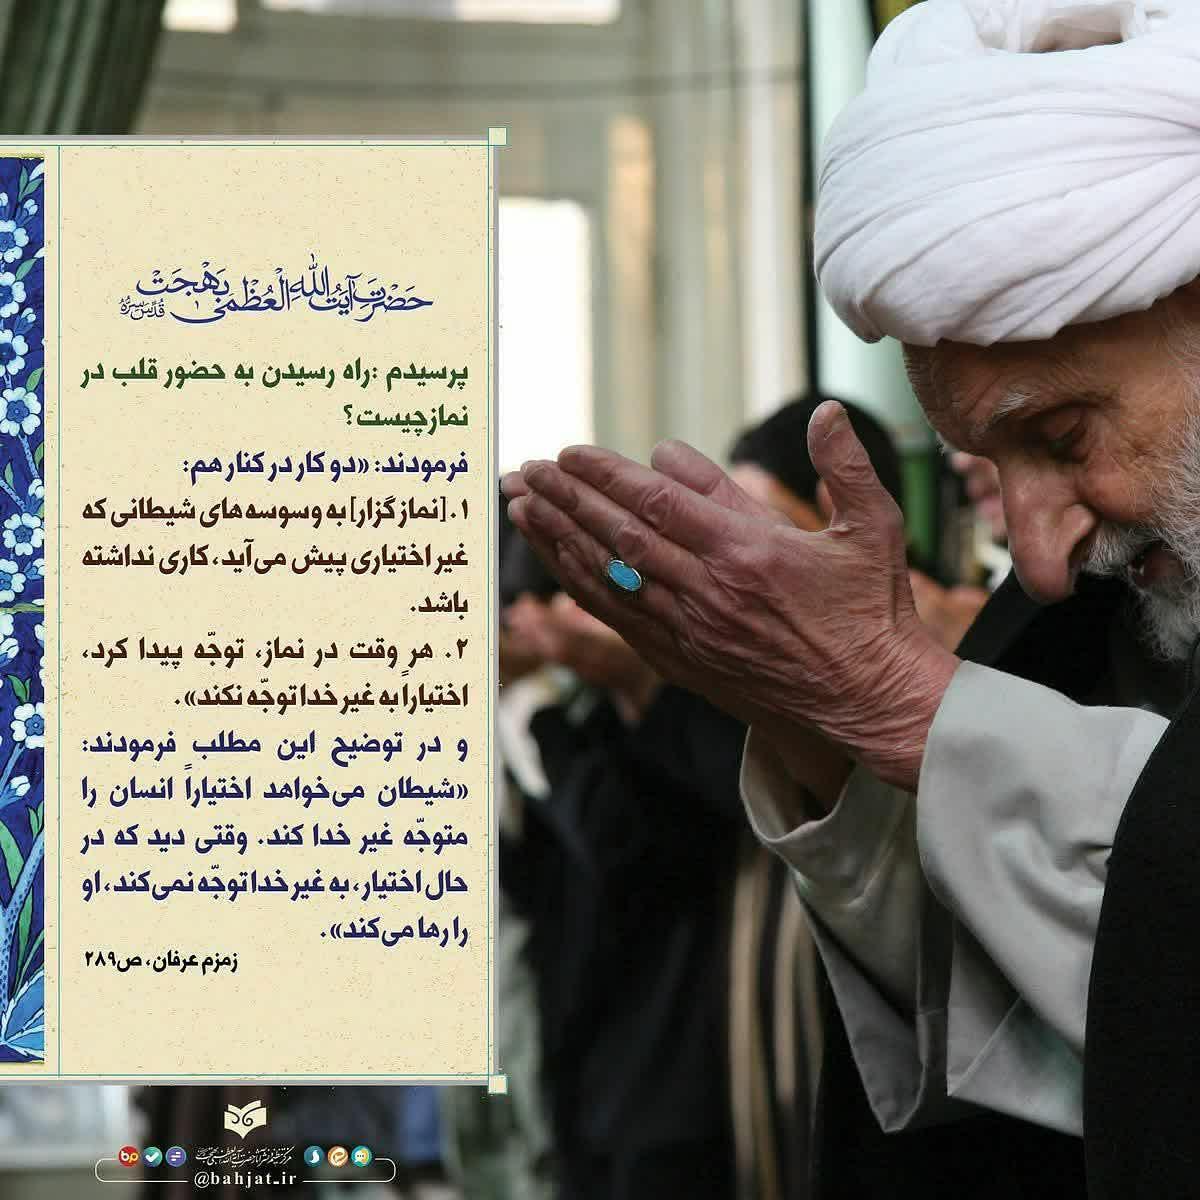 حَضْرَتِ آیَتُ اللهِ الْعُظْمیٰ بَهْجَتْ قُدِّسَ سِرُّهُ
پرسیدم :راه رسیدن به حضور قلب در
نمازچیست؟
فرمودند: «دو کار در کنار هم:
۱.[نمازگزار] به وسوسه‌های شیطانی که
غیر اختیاری پیش می‌آید، کاری نداشته
باشد.
۲. هر وقت در نماز، توجّه پیدا کرد،
اختیاراً به غیر خدا توجّه نکند».
و در توضیح این مطلب فرمودند:
«شیطان می‌خواهد اختیاراً انسان را
متوجّه غیر خدا کند. وقتی دید که در
حال اختیار، به غیر خدا توجّه نمی‌کند، او
را رها می‌کند».
زمزم عرفان، ص۲۸۹
@bahjat_ir